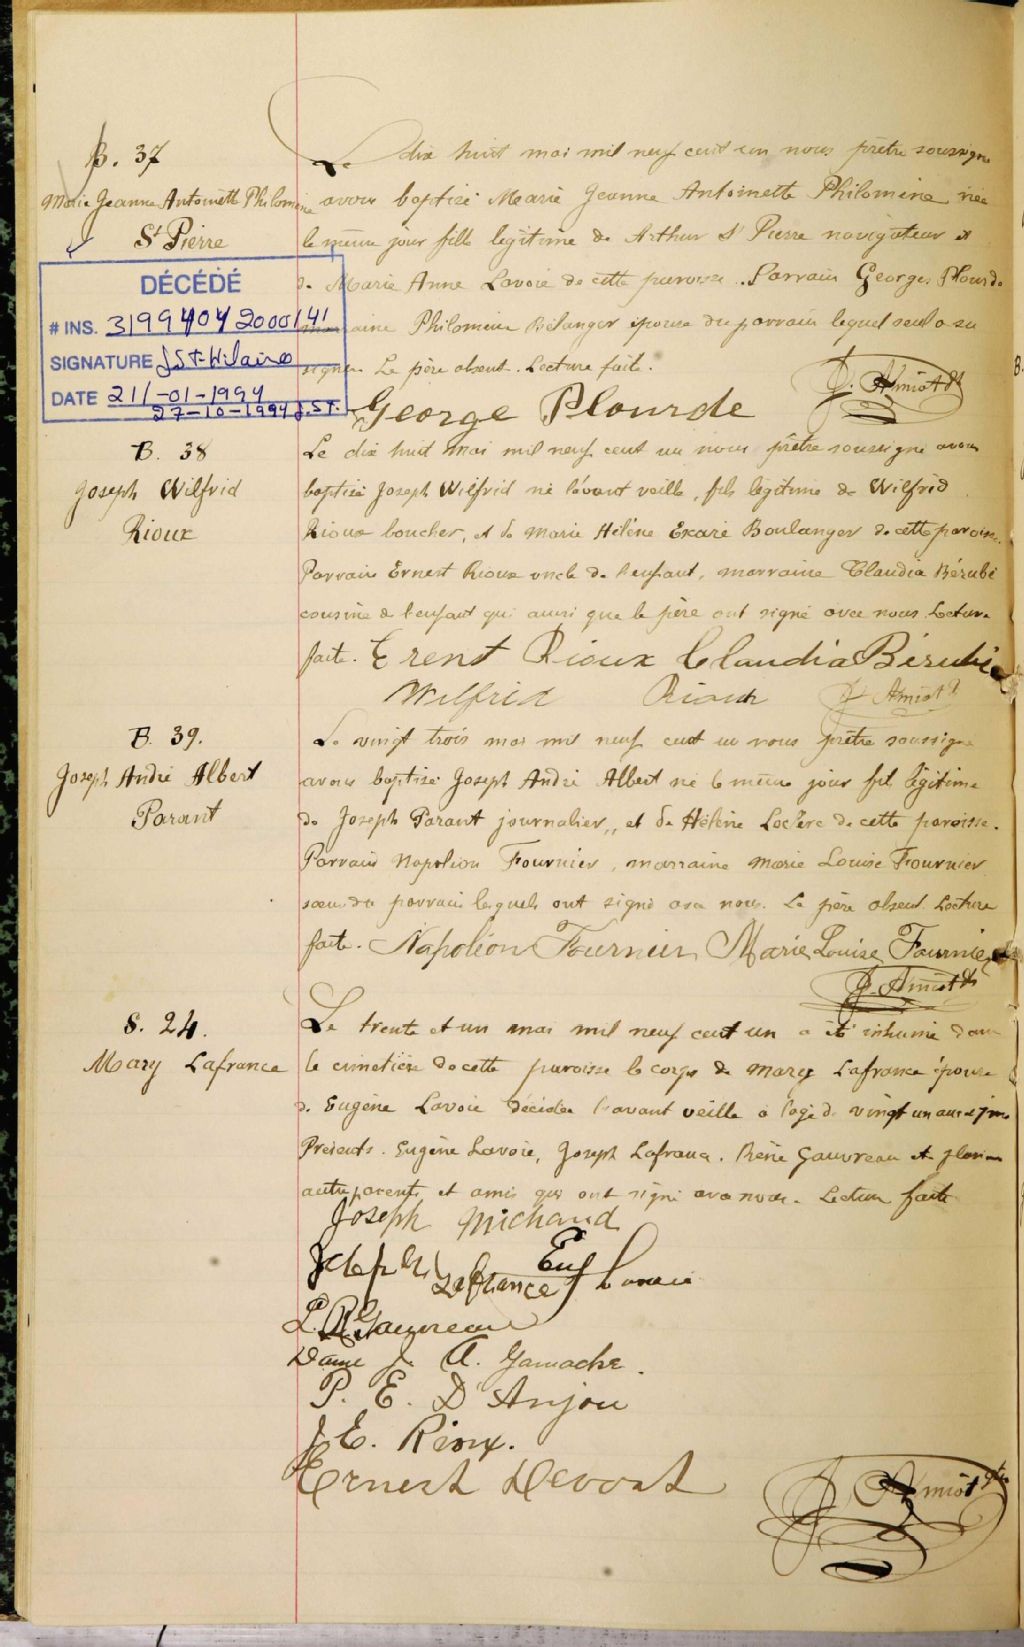 B. 37
Marie Jeanne Antoinette Philomène
St Pierre
Le dix huit mai mil neuf cent un nous prêtre soussigné
avons baptisé Marie Jeanne Antoinette Philomène née
le même jour fille légitime de Arthur St Pierre navigateur et
de Marie Anne Lavoie de cette paroisse. Parrain Georges Plourde
marraine Philomène Bélanger épouse du parrain lequel seul a su
signer. Le père absent. Lecture faite.
J. Amiot
George Plourde
DÉCÉDÉ
# INS. 3199404 2000141
SIGNATURE J St-Hilaire
DATE 211-01-1994
27-10-1994 J.ST.
B. 38
Joseph Wilfrid
Rioux
Le dix huit mai mil neuf cent un nous prêtre soussigné avons
baptisé Joseph Wilfrid né l'avant veille, fils légitime de Wilfrid
Rioux boucher, et de Marie Hélène Exaré Boulanger de cette paroisse.
Parrain Ernest Rioux oncle de l'enfant, marraine Claudia Bérubé
cousine de l'enfant qui ainsi que le père ont signé avec nous. Lecture
faite. Erenst Rioux Claudia Bérubé
Wilfrid Rioux J. Amiot
B. 39.
Joseph André Albert
Parant
Le vingt trois mai mil neuf cent un nous prêtre soussigné
avons baptisé Joseph André Albert né le même jour fils légitime
de Joseph Parant journalier, et de Hélène Leclerc de cette paroisse.
Parrain Napoléon Fournier, marraine Marie Louise Fournier
sœur du parrain lesquels ont signé avec nous. Le père absent. Lecture
faite. Napoléon Fournier Marie Louise Fournier
J. Amiot
S. 24.
Mary Lafrance
Le trente et un mai mil neuf cent un a été inhumé dans
le cimetière de cette paroisse le corps de Mary Lafrance épouse
de Eugène Lavoie décédée l'avant veille à l'age de vingt un ans
Présents. Eugène Lavoie, Joseph Lafrance. Réné Gauvreau et plusieurs
autres parents et amis qui ont signé avec nous. Lecture faite
Joseph Michaud
Joseph Lafrance Eug Lavoie
L. R. Gauvreau
Dame J. A. Gamache.
P. E. D'Anjou
J. E. Rioux.
Ernest Devost
J. Amiot